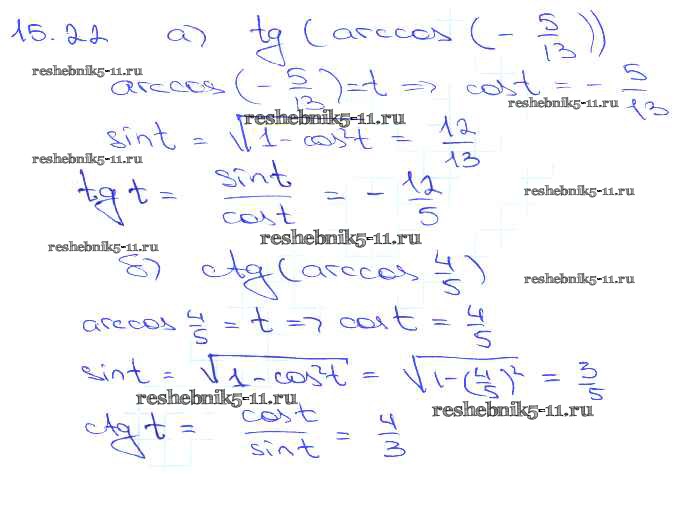 15.22 а) tg (arccos (- 5/13))
reshebnik5-11.ru
arccos (- 5/13) = t => cos t = - 5/13
reshebnik5-11.ru
reshebnik5-11.ru
sin t = √(1 - cos²t) = 12/13
reshebnik5-11.ru
tg t = sin t / cos t = - 12/5
reshebnik5-11.ru
reshebnik5-11.ru
reshebnik5-11.ru
б) ctg (arccos 4/5)
reshebnik5-11.ru
arccos 4/5 = t => cos t = 4/5
sin t = √(1 - cos²t) = √(1 - (4/5)²) = 3/5
reshebnik5-11.ru
reshebnik5-11.ru
ctg t = cos t / sin t = 4/3